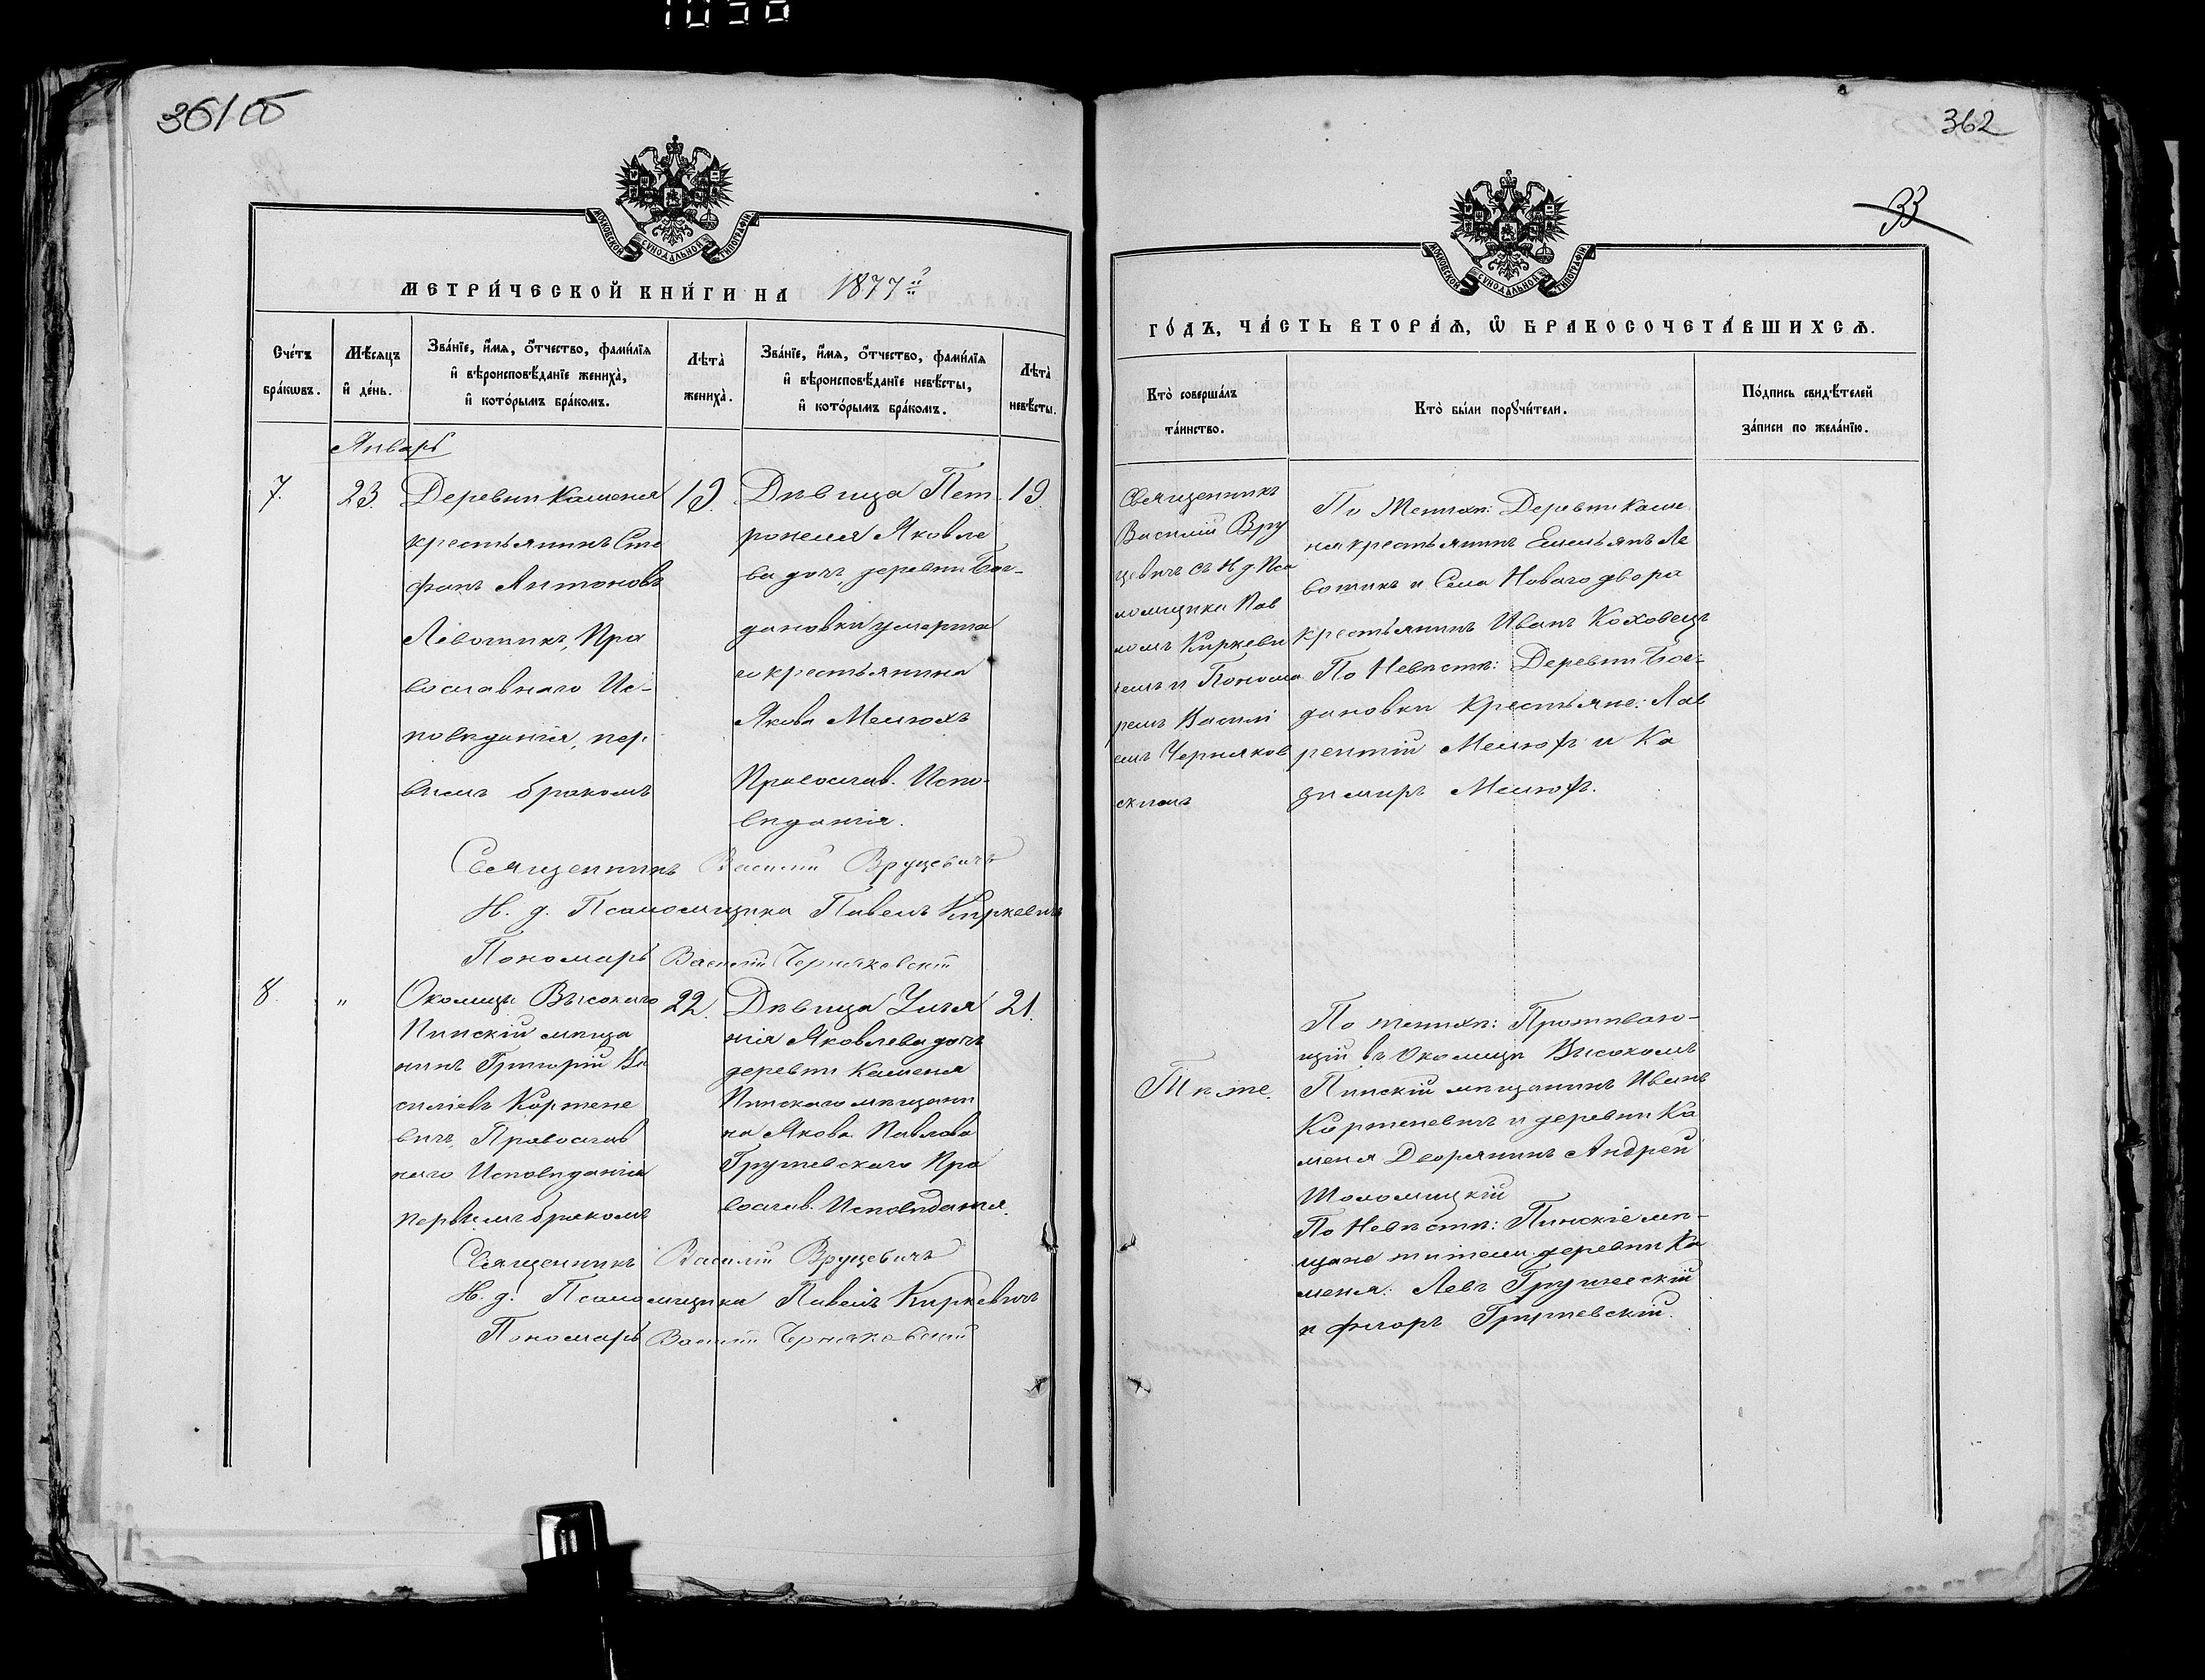 361 об
МОСКОВСКОЙ СѴНОДАЛЬНОЙ ТИПОГРАФІИ
МЕТРИ́ЧЕСКОЙ КНИ́ГИ НА 1877 й
Сче́тъ бра́кѡвъ.
Мѣ́сяцъ и҆ де́нь.
Зва́нїе, и҆́мѧ, ѻ҆́тчество, фамѝлїѧ
и҆ вѣроисповѣ́данїе жениха̀,
и҆ кото́рымъ бра́комъ.
Лѣта̀ жениха̀.
Зва́нїе, и҆́мѧ, ѻ҆́тчество, фамѝлїѧ
и҆ вѣроисповѣ́данїе невѣ́сты,
и҆ кото́рымъ бра́комъ.
Лѣта̀ невѣ́сты.
Январь
7.
23.
Деревни Каменя
крестьянинъ Сте
фанъ Антоновъ
Левотикъ, Пра
вославнаго Ис-
повѣданія, пер
вымъ бракомъ
19.
Дѣвица Пет-
ронеля Яковле
ва дочь деревни Бог-
дановки умерша
го крестьянина
Якова Мелюхъ
Православ. Испо-
вѣданія.
19.
Священникъ Василій Вруцевичъ
Н. д. Псаломщика Павелъ Киркевичъ
Пономарь Василій Черняковскій
8.
"
Околицы Высокаго
Пинскій мѣща
нинъ Григорій Ва
силіевъ Коржене
вичъ, Православ
наго Исповѣданія
первымъ бракомъ
22.
Дѣвица Улья
нія Яковлева дочь
деревни Каменя
Пинскаго мѣщани
на Якова Павлова
Грушевскаго Пра
вослав. Исповѣданія.
21.
Священникъ Василій Вруцевичъ
Н. д. Псаломщика Павелъ Киркевичъ
Пономарь Василій Черняковскій
362
33
МОСКОВСКОЙ СѴНОДАЛЬНОЙ ТИПОГРАФІИ
ГО́ДЪ, ЧА́СТЬ ВТОРА́Ѧ, Ѽ БРАКОСОЧЕТА́ВШИХСѦ.
Кто̀ соверша́лъ
та́инство.
Кто̀ бы́ли порꙋчи́тели.
По́дпись свидѣ́телей
за́писи по жела́нїю.
Священникъ
Василій Вру
цевичъ съ Н. д. Пса
ломщика Пав
ломъ Киркеви
чемъ и Понома
ремъ Василі
емъ Черняков
скимъ
По Женихѣ: Деревни Каме
ня крестьянинъ Емельянъ Ле
вотикъ и Села Новаго двора
крестьянинъ Иванъ Коховецъ
По Невѣстѣ: Деревни Бог-
дановки Крестьяне: Лав
рентій Мелюхъ и Ка
зимиръ Мелюхъ.
Тѣ же.
По женихѣ: Проживаю-
щій въ Околицѣ Высокомъ
Пинскій мѣщанинъ Иванъ
Корженевичъ и деревни Ка
меня Дворянинъ Андрей
Шоломицкій
По Невѣстѣ: Пинскіе мѣ-
щане жители деревни Ка
меня: Левъ Грушевскій
и Флоръ Грушевскій.